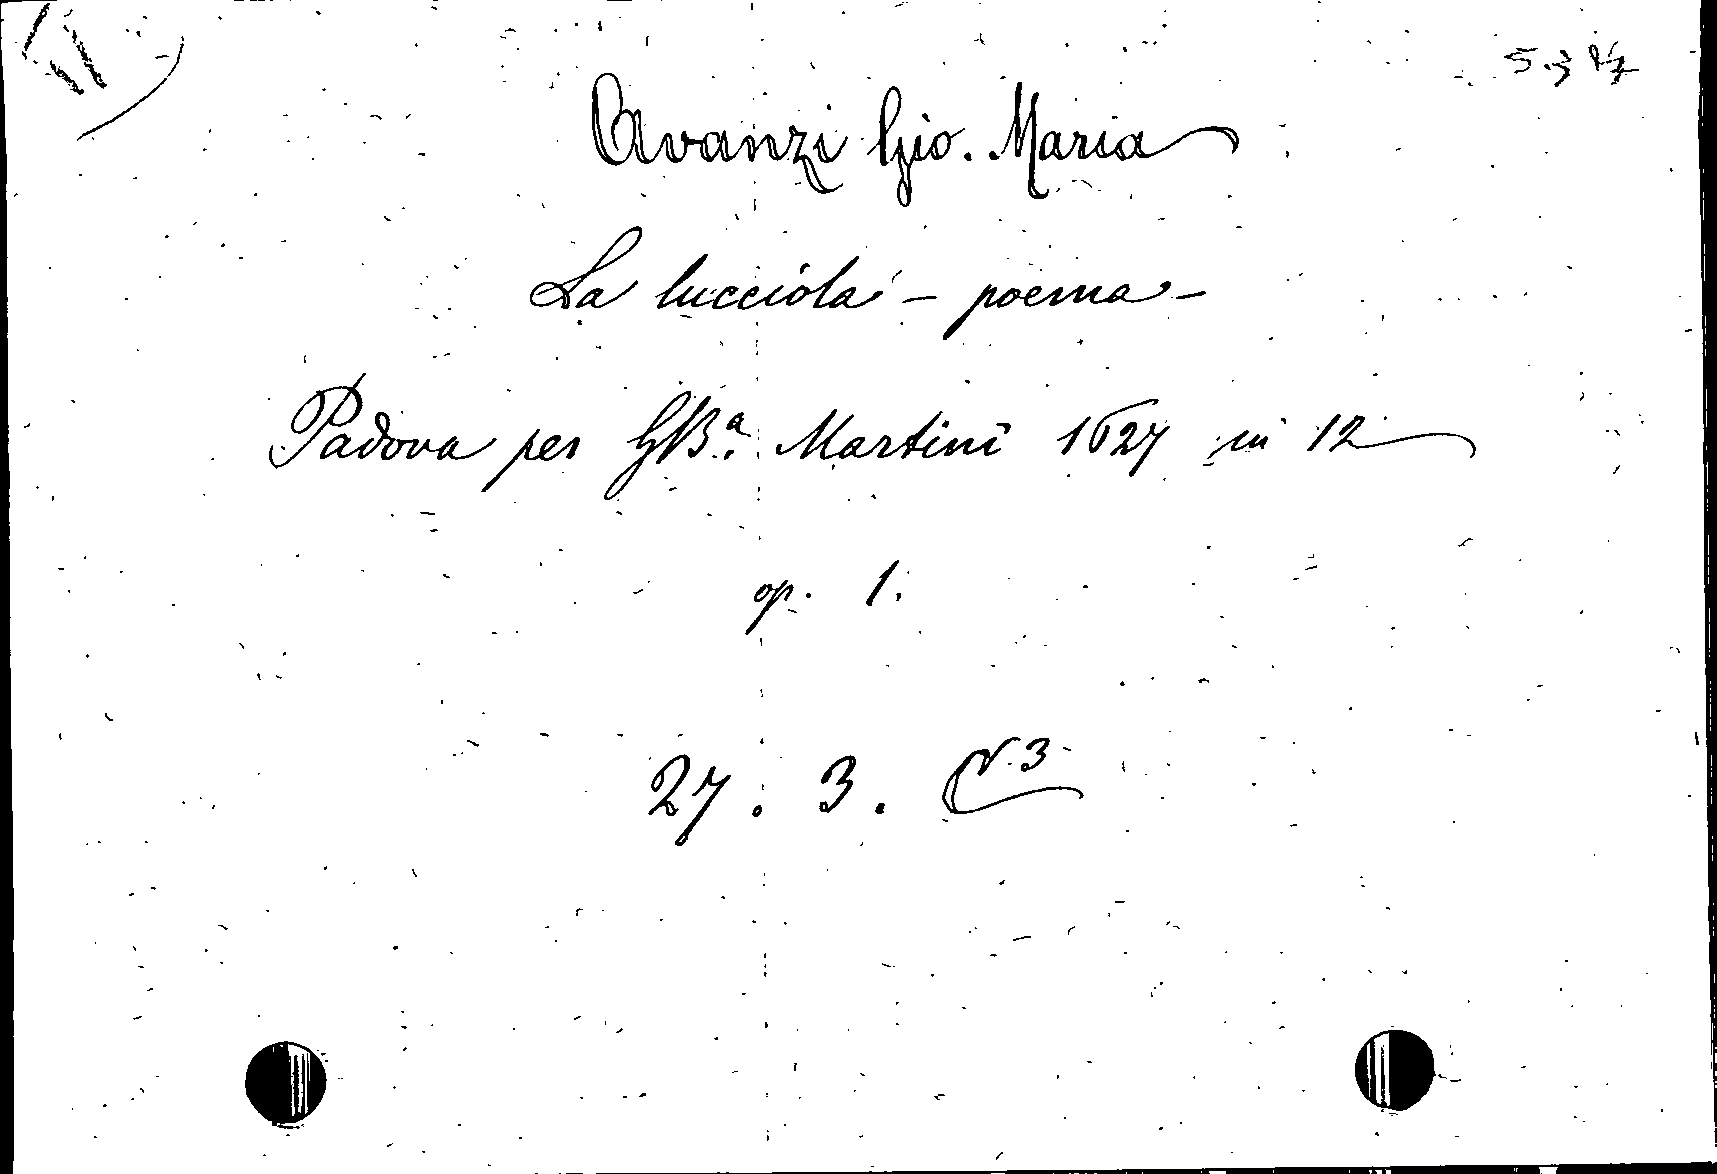 Avanzi Gio. Maria
La lucciola - poema -
Padova per GBª. Martini 1627 in 12
op. 1.
27. 3. N. 3